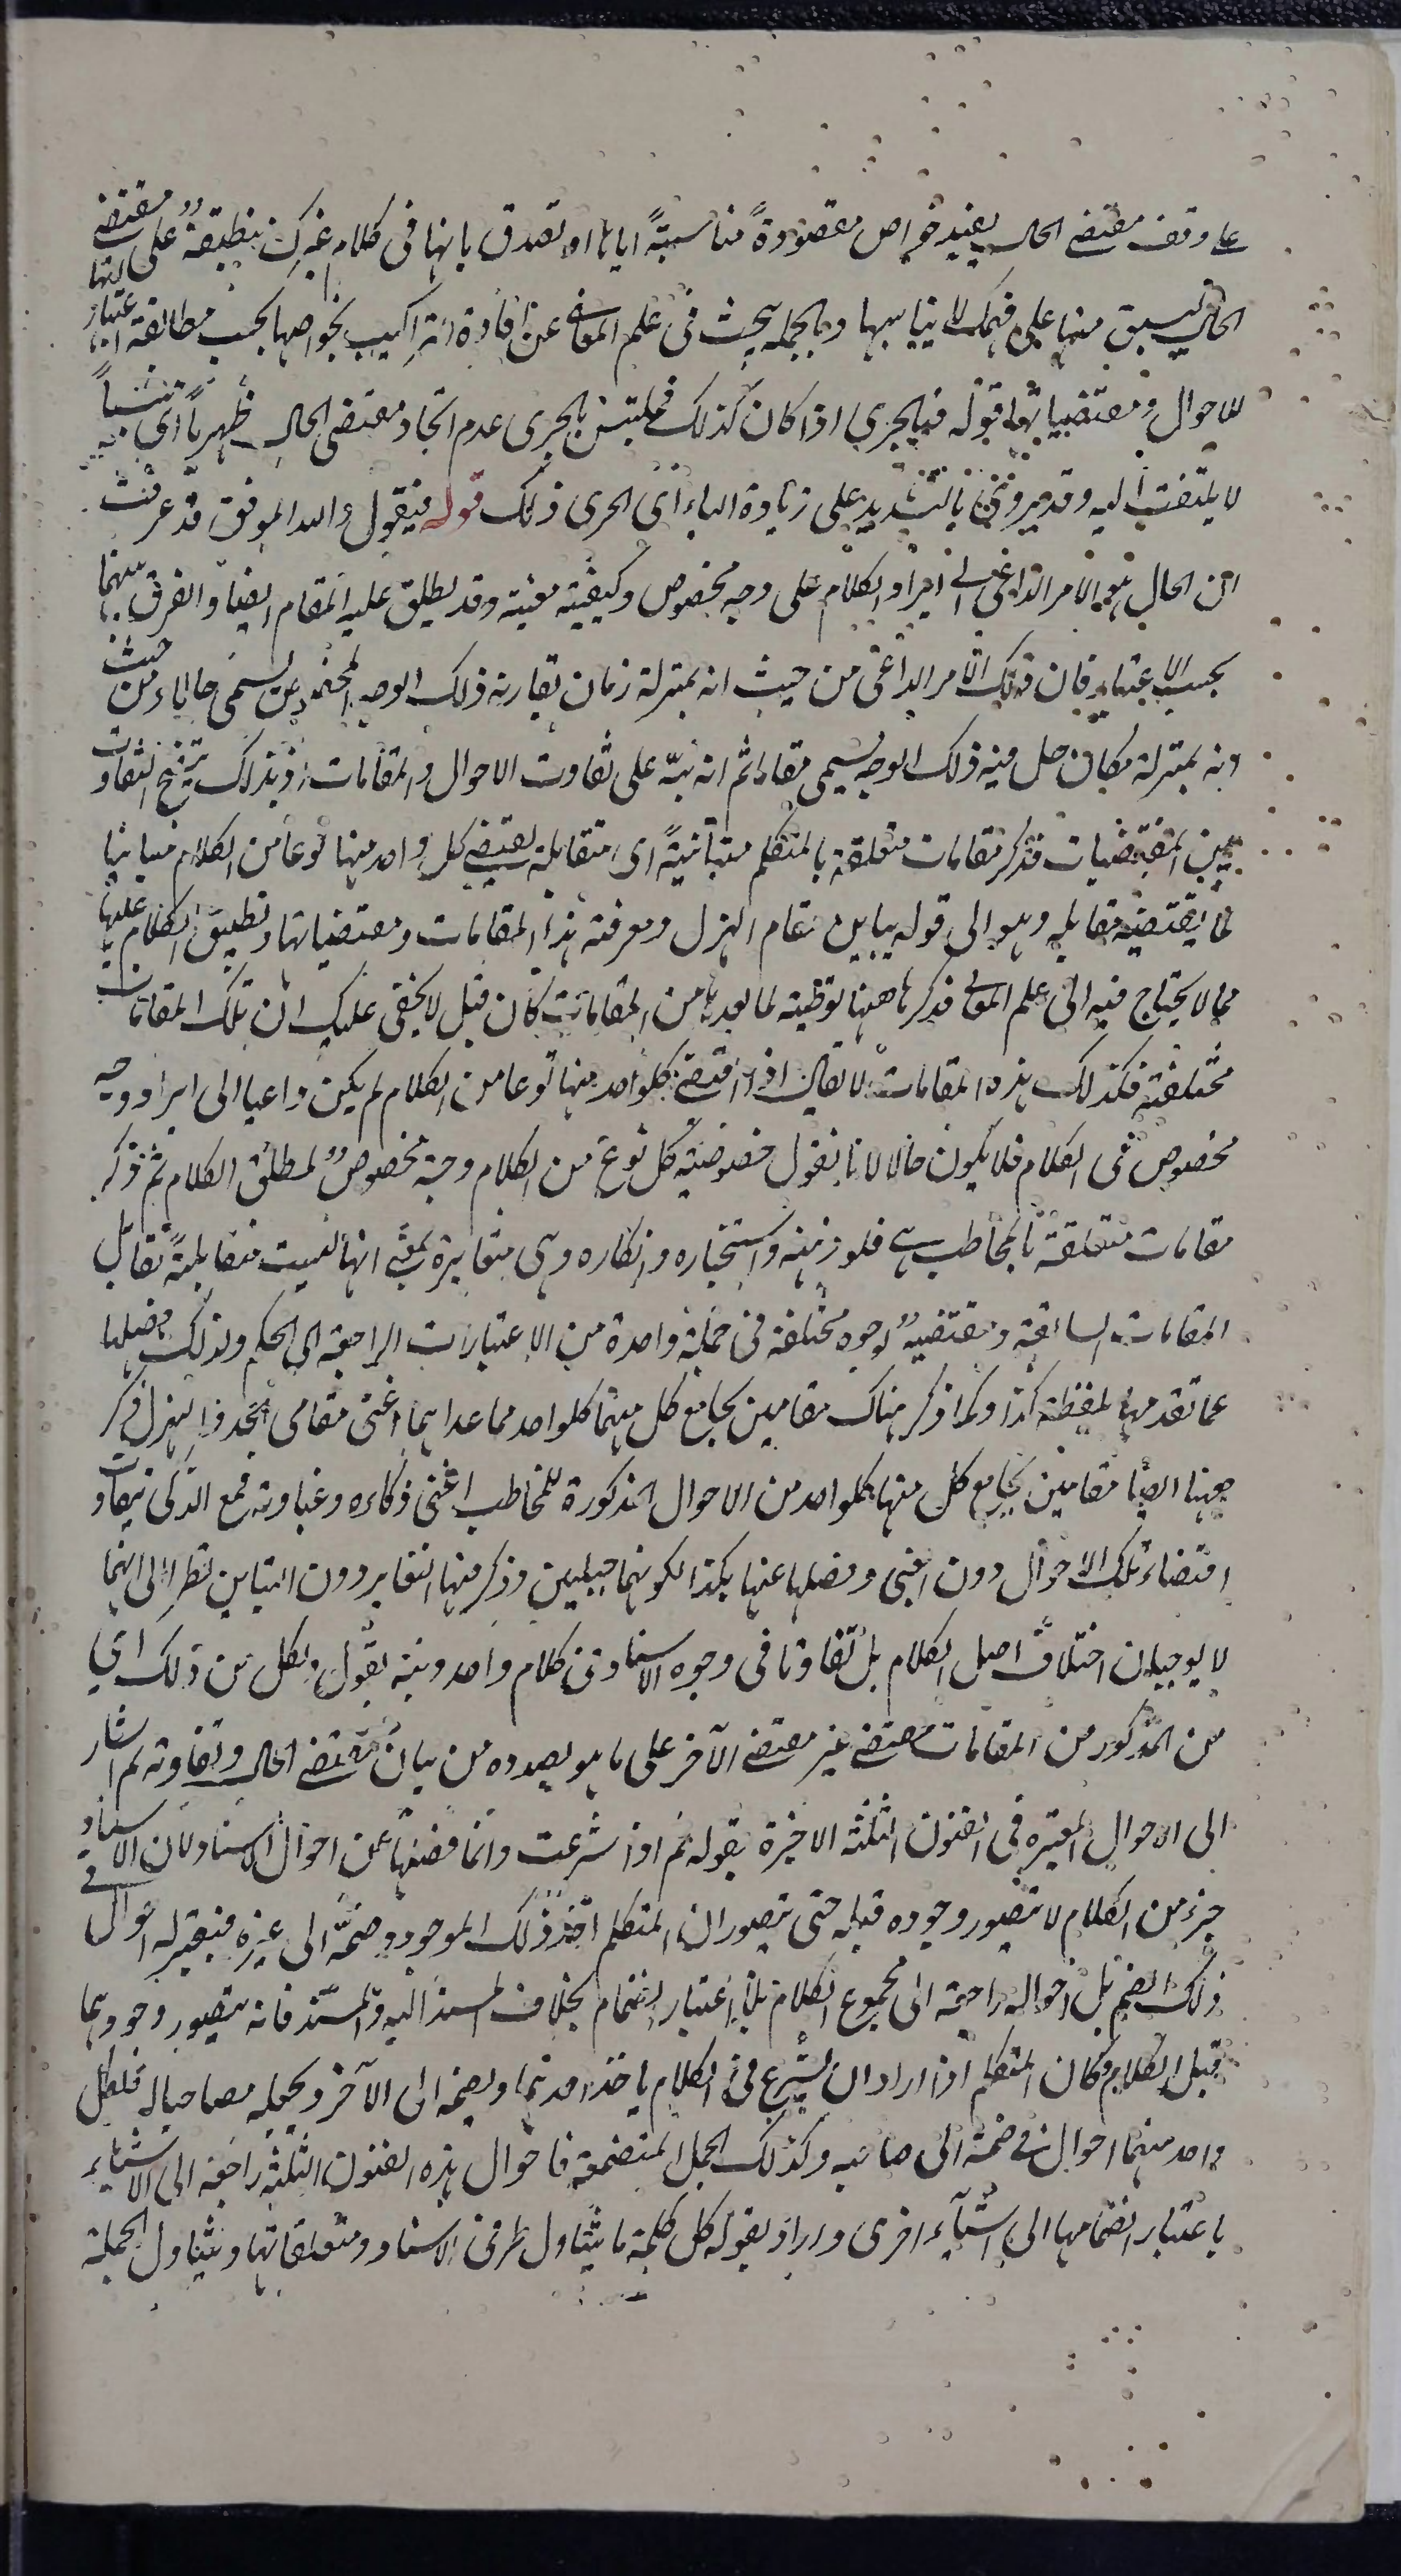 على وفق مقتضى الحال يفيد خواص مقصودة مناسبة اياها او تصدق بانها في كلام غيرك منطبقة على مقتضى
الحال ليسبق منها على فهمك ما يناسبها وبالجملة يبحث في علم المعاني عن افادة التراكيب بخواصها بحسب مطابقة اعتبارها
للاحوال ومقتضياتها قوله فبالحري اذا كان كذلك فملتبس بالحري عدم اتخاذ مقتضى الحال ظهريا اي شيئا
لا يلتفت اليه وقد يروى بالتشديد على زيادة الباء اي الحري ذلك قوله فنقول والله الموفق قد عرفت
ان الحال هو الامر الداعي الى ايراد الكلام على وجه مخصوص وكيفية معينة وقد يطلق عليه المقام ايضا والفرق بينهما
بحسب الاعتبار فان ذلك الامر الداعي من حيث انه بمنزلة زمان يقارنه ذلك الوجه المخصوص يسمى حالا ومن حيث
انه بمنزلة مكان حل فيه ذلك الوجه يسمى مقاما ثم انه نبه على تفاوت الاحوال والمقامات اذ بذلك يتضح التفاوت
بين المقتضيات فذكر مقامات متعلقة بالمتكلم متباينة اي متقابلة يقتضي كل واحد منها نوعا من الكلام مباينا
لما يقتضيه مقابله وهو الى قوله يباين مقام الهزل ومعرفة هذا المقامات ومقتضياتها وتطبيق الكلام عليها
مما لا يحتاج فيه الى علم المعاني فذكرها ههنا توطئة لما بعدها من المقامات كان قيل لا يخفى عليك ان تلك المقامات
مختلفة فكذلك هذه المقامات لا يقال اذا اقتضى كلواحد منها نوعا من الكلام لم يكن داعيا الى ايراد وجه
مخصوص في الكلام فلا يكون حالا لانا نقول خصوصية كل نوع من الكلام وجه مخصوص لمطلق الكلام ثم ذكر
مقامات متعلقة بالمخاطب هي خلو ذهنه واستخباره وانكاره وهي متغايرة بمعنى انها ليست متقابلة تقابل
المقامات السابقة ومقتضية لوجوه مختلفة في جملة واحدة من الاعتبارات الراجعة الى الحكم ولذلك فصلها
عما تقدمها بلفظة كذا وكما ذكر هناك مقامين يجامع كل منهما كلواحد مما عداهما اعني مقامي الجد والهزل ذكر
ههنا ايضا مقامين يجامع كل منها كلواحد من الاحوال المذكورة للمخاطب اعني ذكاءه وغباوته فمع الذكي يتفاوت
اقتضاء تلك الاحوال دون الغبي وفصلها عنها بكذا لكونهما جبليين وذكر فيها التغاير دون التباين نظرا الى انهما
لا يوجبان اختلاف اصل الكلام بل تفاوتا في وجوه الاسناد في كلام واحد ونبه بقوله ولكل من ذلك اي
من المذكور من المقامات مقتضى غير مقتضى الآخر على ما هو بصدده من بيان مقتضى الحال وتفاوته ثم اشار
الى الاحوال المعتبرة في الفنون الثلثة الاخيرة بقوله ثم اذا شرعت وانما فصلها عن احوال الاسناد لان الاسناد
جزء من الكلام لا يتصور وجوده قبله حتى يتصور ان المتكلم اخذ ذلك الموجود وضمه الى غيره فيعتبر له احوال في
ذلك الضم بل احواله راجعة الى مجموع الكلام بلا اعتبار انضمام بخلاف المسند اليه والمسند فانه يتصور وجودهما
قبل الكلام فكان المتكلم اذا اراد ان يشرع في الكلام ياخذ احدهما ويضمه الى الآخر ويجعله مصاحبا له فلكل
واحد منهما احوال في ضمه الى صاحبه وكذلك الجمل المنضمة فاحوال هذه الفنون الثلثة راجعة الى الاشياء
باعتبار انضمامها الى اشياء اخرى واراد بقوله كل كلمة ما يتناول طرفي الاسناد ومتعلقاتها ويتناول الجملة